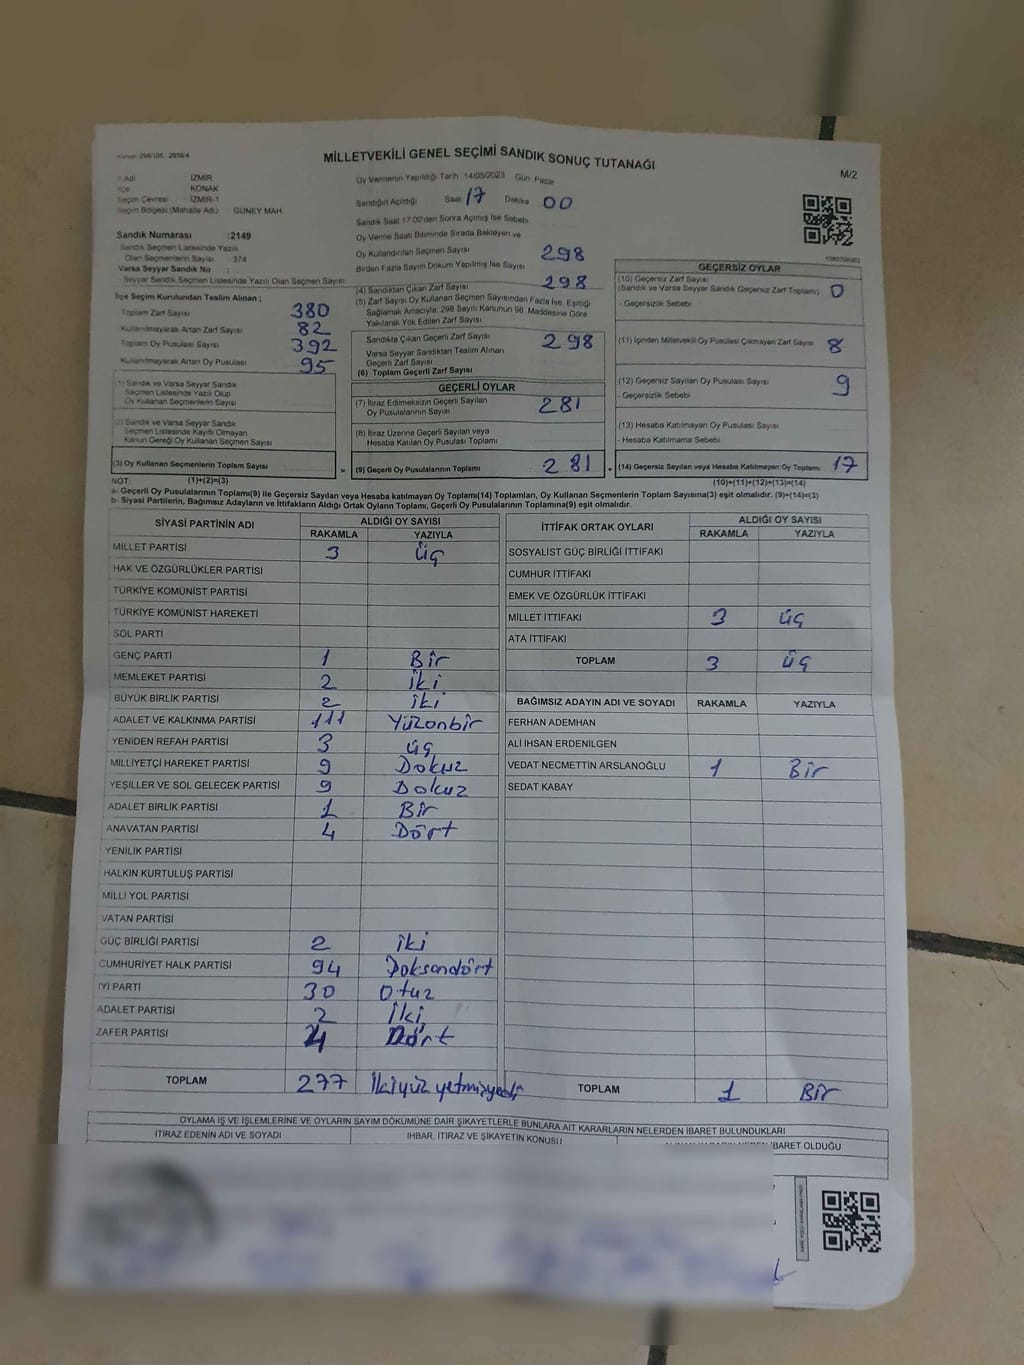 MİLLETVEKİLİ GENEL SEÇİMİ SANDIK SONUÇ TUTANAĞI
M/2
İZMİR
İlçe KONAK
Seçim Çevresi İZMİR-1
Seçim Bölgesi (Mahalle Adı) GÜNEY MAH.
Sandık Numarası :2149
Sandık Seçmen Listesinde Yazılı
Olan Seçmenlerin Sayısı : 374
Varsa Seyyar Sandık No :
Seyyar Sandık Seçmen Listesinde Yazılı Olan Seçmen Sayısı
İlçe Seçim Kurulundan Teslim Alınan ;
Toplam Zarf Sayısı 380
Kullanılmayarak Artan Zarf Sayısı 82
Toplam Oy Pusulası Sayısı 392
Kullanılmayarak Artan Oy Pusulası 95
1) Sandık ve Varsa Seyyar Sandık
Seçmen Listesinde Yazılı Olup
Oy Kullanan Seçmenlerin Sayısı
2) Sandık ve Varsa Seyyar Sandık
Seçmen Listesinde Kayıtlı Olmayan
Kanun Gereği Oy Kullanan Seçmen Sayısı
(3) Oy Kullanan Seçmenlerin Toplam Sayısı
Oy Vermenin Yapıldığı Tarih 14/05/2023 Gün Pazar
Sandığın Açıldığı Saat 17 Dakika 00
Sandık Saat 17:00'den Sonra Açılmış İse Sebebi
Oy Verme Saati Bitiminde Sırada Bekleyen ve
Oy Kullandırılan Seçmen Sayısı 298
Birden Fazla Sayım Döküm Yapılmış İse Sayısı
(4) Sandıktan Çıkan Zarf Sayısı 298
(5) Zarf Sayısı Oy Kullanan Seçmen Sayısından Fazla İse, Eşitliği
Sağlamak Amacıyla; 298 Sayılı Kanunun 98. Maddesine Göre
Yakılarak Yok Edilen Zarf Sayısı
Sandıkta Çıkan Geçerli Zarf Sayısı 298
Varsa Seyyar Sandıktan Teslim Alınan
Geçerli Zarf Sayısı
(6) Toplam Geçerli Zarf Sayısı
GEÇERLİ OYLAR
(7) İtiraz Edilmeksizin Geçerli Sayılan
Oy Pusulalarının Sayısı 281
(8) İtiraz Üzerine Geçerli Sayılan veya
Hesaba Katılan Oy Pusulası Toplamı
= (9) Geçerli Oy Pusulalarının Toplamı 281
GEÇERSİZ OYLAR
(10) Geçersiz Zarf Sayısı
(Sandık ve Varsa Seyyar Sandık Geçersiz Zarf Toplamı) 0
- Geçersizlik Sebebi
(11) İçinden Milletvekili Oy Pusulası Çıkmayan Zarf Sayısı 8
(12) Geçersiz Sayılan Oy Pusulası Sayısı 9
- Geçersizlik Sebebi
(13) Hesaba Katılmayan Oy Pusulası Sayısı
- Hesaba Katılmama Sebebi
+ (14) Geçersiz Sayılan veya Hesaba Katılmayan Oy Toplamı 17
NOT: (1)+(2)=(3) (10)+(11)+(12)+(13)=(14)
a- Geçerli Oy Pusulalarının Toplamı(9) ile Geçersiz Sayılan veya Hesaba katılmayan Oy Toplamı(14) Toplamları, Oy Kullanan Seçmenlerin Toplam Sayısına(3) eşit olmalıdır. (9)+(14)=(3)
b- Siyasi Partilerin, Bağımsız Adayların ve İttifakların Aldığı Ortak Oyların Toplamı, Geçerli Oy Pusulalarının Toplamına(9) eşit olmalıdır.
SİYASİ PARTİNİN ADI ALDIĞI OY SAYISI
RAKAMLA YAZIYLA
MİLLET PARTİSİ 3 üç
HAK VE ÖZGÜRLÜKLER PARTİSİ
TÜRKİYE KOMÜNİST PARTİSİ
TÜRKİYE KOMÜNİST HAREKETİ
SOL PARTİ
GENÇ PARTİ 1 Bir
MEMLEKET PARTİSİ 2 iki
BÜYÜK BİRLİK PARTİSİ 2 iki
ADALET VE KALKINMA PARTİSİ 111 Yüzonbir
YENİDEN REFAH PARTİSİ 3 üç
MİLLİYETÇİ HAREKET PARTİSİ 9 Dokuz
YEŞİLLER VE SOL GELECEK PARTİSİ 9 Dokuz
ADALET BİRLİK PARTİSİ 1 Bir
ANAVATAN PARTİSİ 4 Dört
YENİLİK PARTİSİ
HALKIN KURTULUŞ PARTİSİ
MİLLİ YOL PARTİSİ
VATAN PARTİSİ
GÜÇ BİRLİĞİ PARTİSİ 2 iki
CUMHURİYET HALK PARTİSİ 94 Doksandört
İYİ PARTİ 30 Otuz
ADALET PARTİSİ 2 İki
ZAFER PARTİSİ 4 Dört
TOPLAM 277 ikiyüzyetmişyedi
İTTİFAK ORTAK OYLARI ALDIĞI OY SAYISI
RAKAMLA YAZIYLA
SOSYALİST GÜÇ BİRLİĞİ İTTİFAKI
CUMHUR İTTİFAKI
EMEK VE ÖZGÜRLÜK İTTİFAKI
MİLLET İTTİFAKI 3 üç
ATA İTTİFAKI
TOPLAM 3 üç
BAĞIMSIZ ADAYIN ADI VE SOYADI RAKAMLA YAZIYLA
FERHAN ADEMHAN
ALİ İHSAN ERDENİLGEN
VEDAT NECMETTİN ARSLANOĞLU 1 Bir
SEDAT KABAY
TOPLAM 1 Bir
OYLAMA İŞ VE İŞLEMLERİNE VE OYLARIN SAYIM DÖKÜMÜNE DAİR ŞİKAYETLERLE BUNLARA AİT KARARLARIN NELERDEN İBARET BULUNDUKLARI
İTİRAZ EDENİN ADI VE SOYADI İHBAR, İTİRAZ VE ŞİKAYETİN KONUSU İBARET OLDUĞU